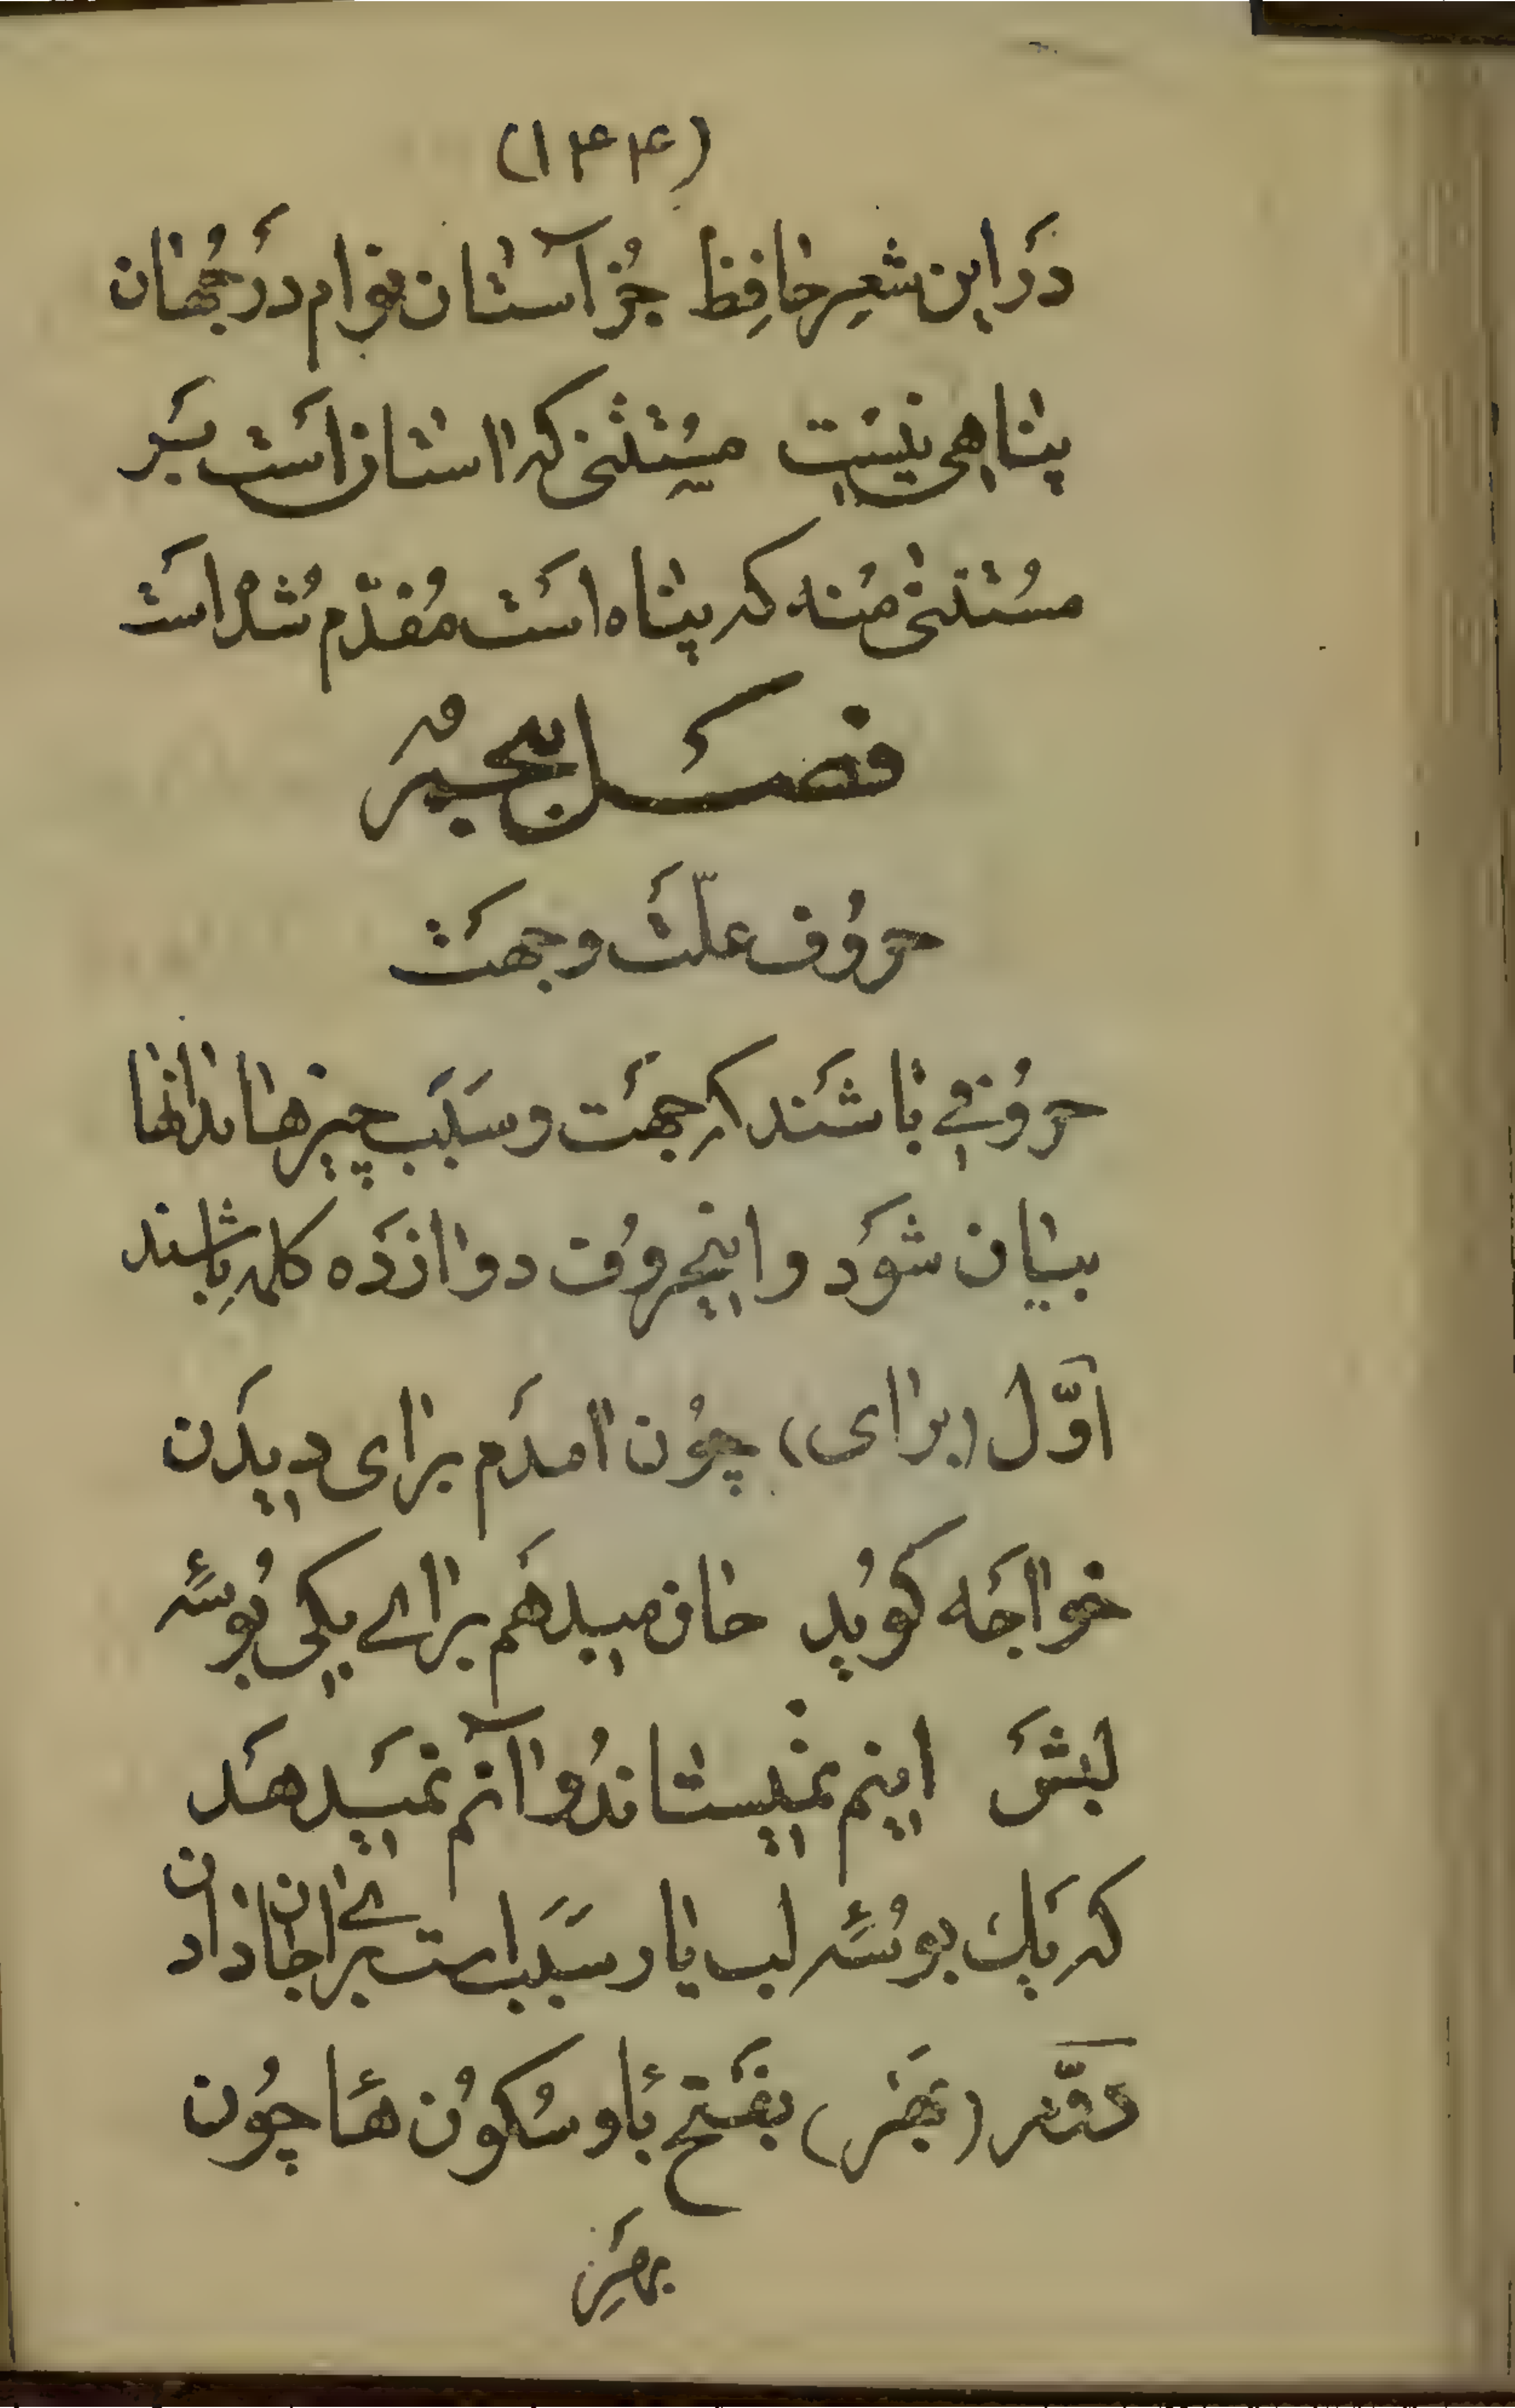 (۱۴۴)
دَر این شعِر حافِظ جُز آستان توام دَر جُهان
پناهی نیست مسُتثنی که استان است بَر
مسُتثنیٰ منُه که پناه است مُقدّم شُده است
فصل پنجم
حروُف علّت وجهَت
حروُفی باشَند که جهَت وسَبَب چیزها بدانها
بیان شوَد و اینحروُف دوازدَه کلمه باشند
اوّل (برای) چوُن امدَم برای دیدَن
خواجَه کوُید جان میدهَم برای یکی بوُسهٔ
لبشَ اینم نمیستاندُ و آنم نمیَدهَد
که یَک بوُسهٔ لب یار سَبَب است برای جان دادن
دوّم (بهَر) بفَتح باٰ و سُکوُن ها چوُن
بهَرِ